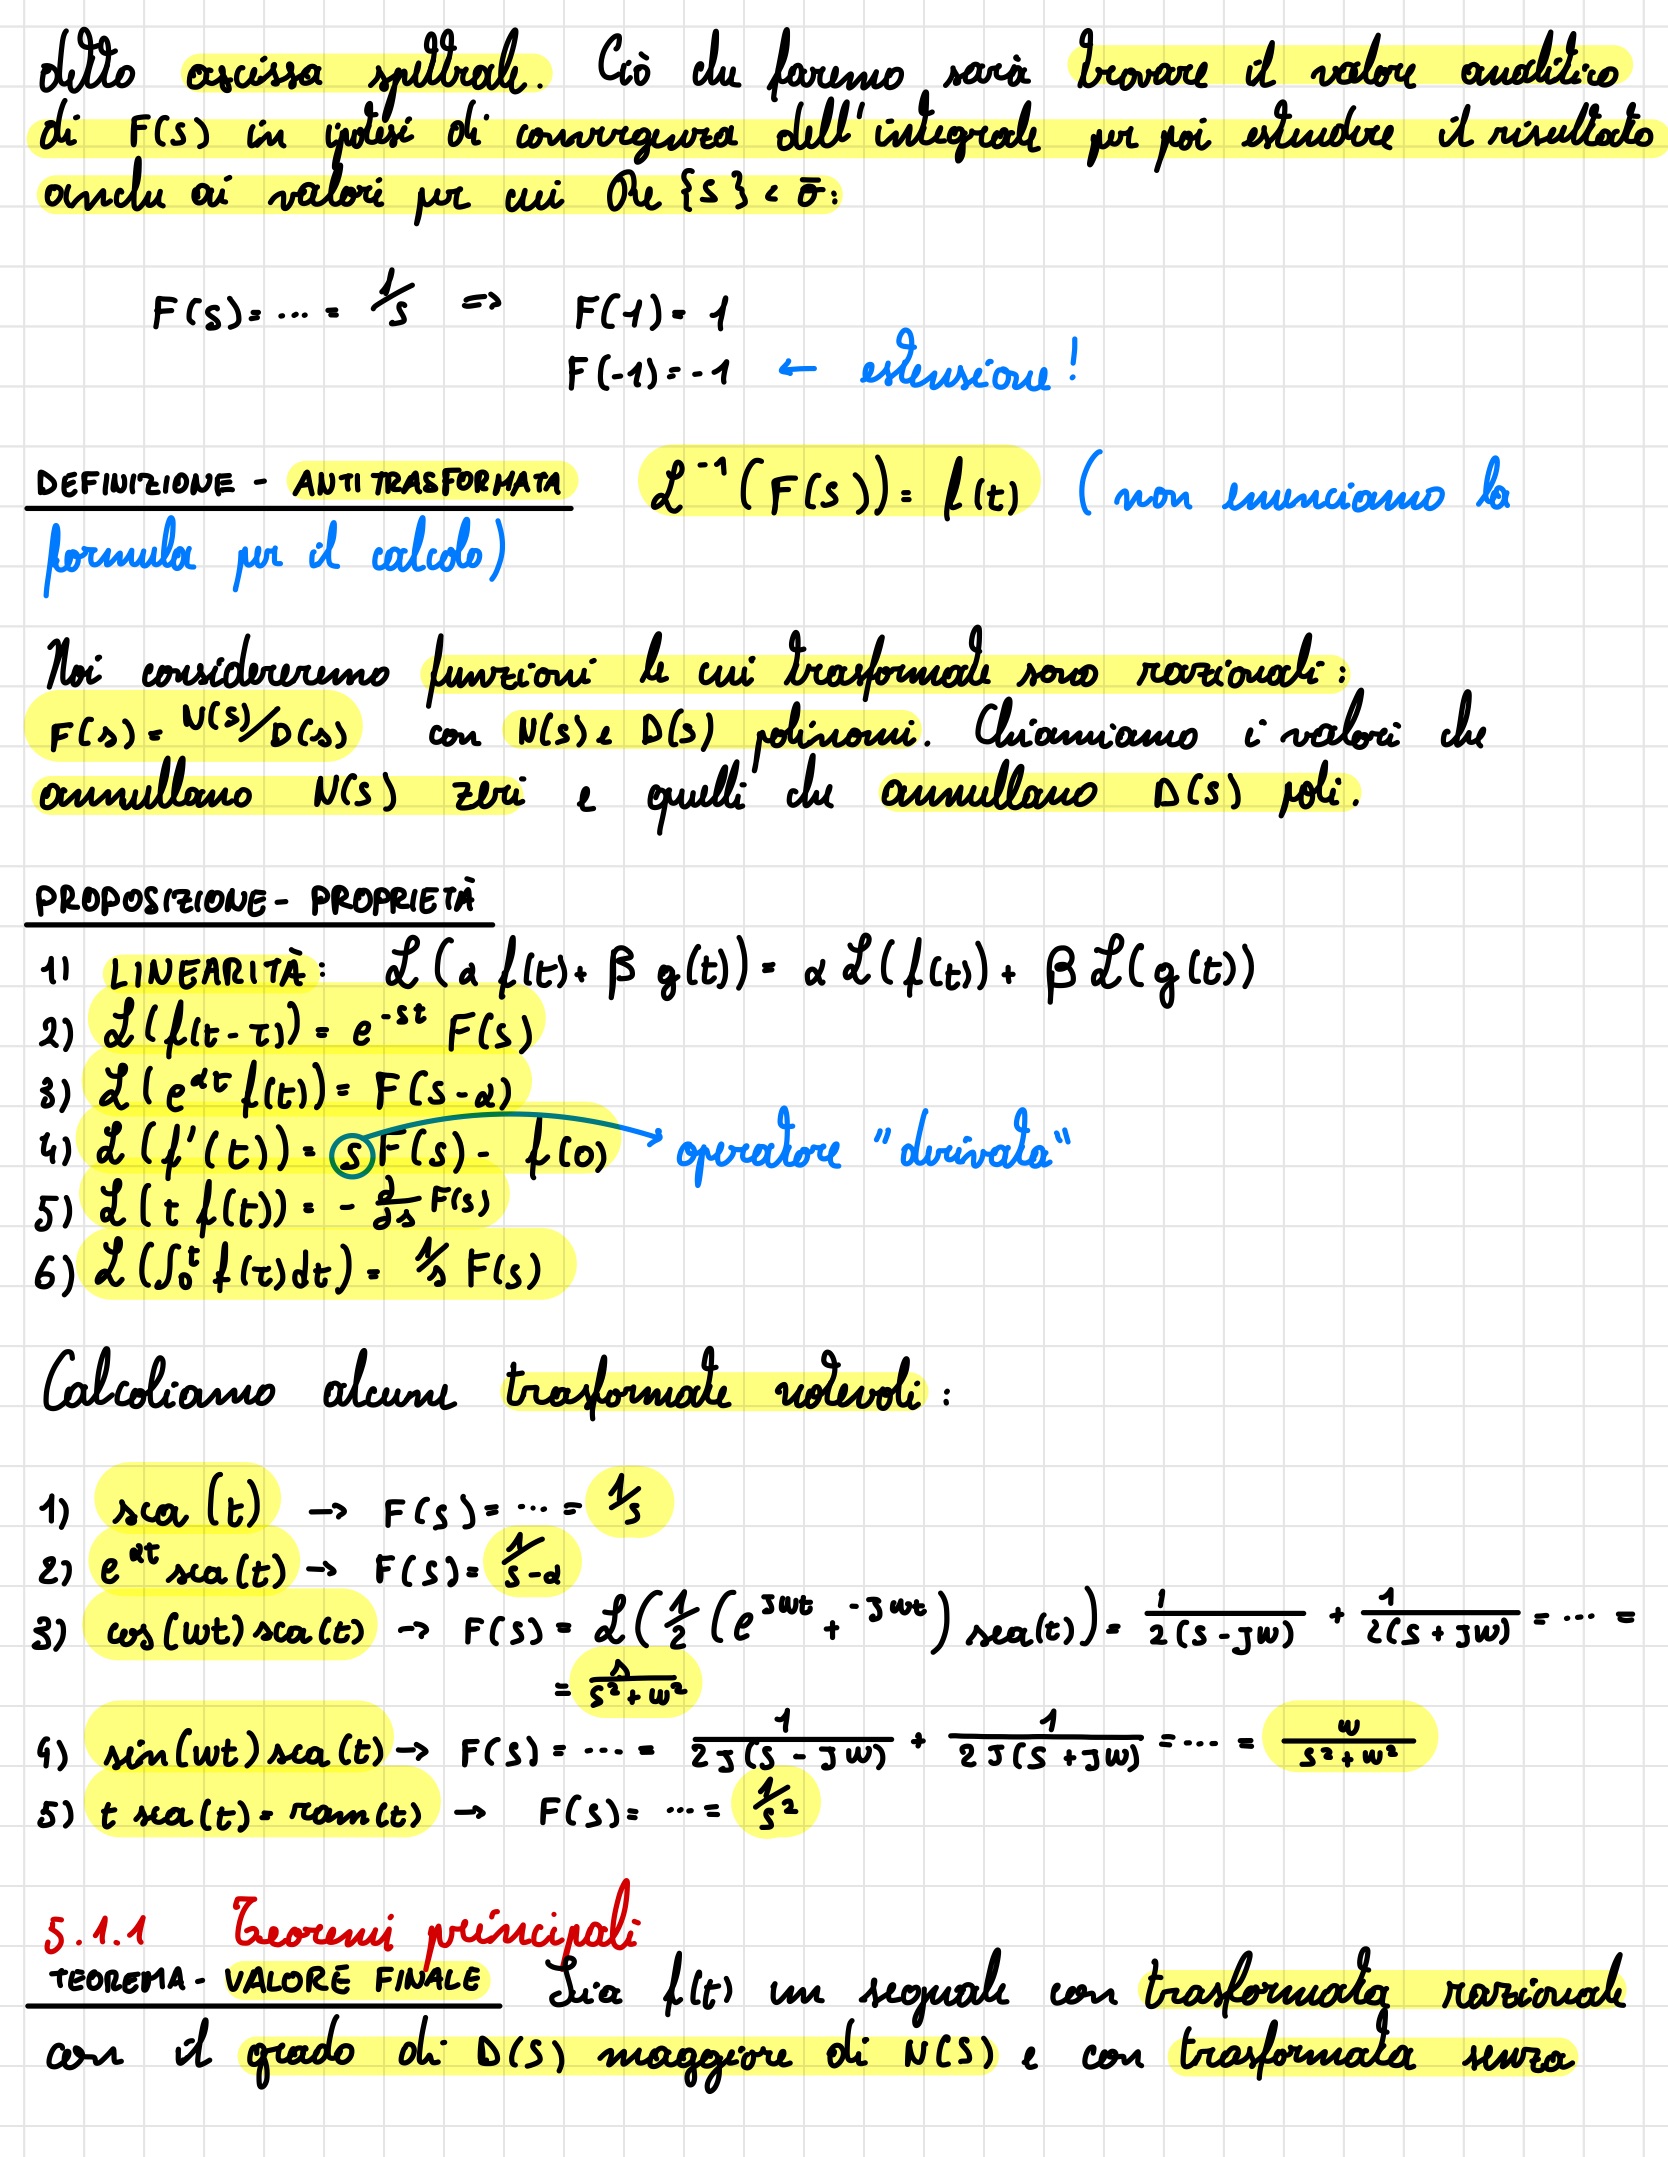 detto ascissa spettrale. Ciò che faremo sarà trovare il valore analitico
di F(s) in ipotesi di convergenza dell'integrale per poi estendere il risultato
anche ai valori per cui Re {s} < σ̄:
F(s) = ... = 1/s => F(1) = 1
F(-1) = -1 ← estensione!
DEFINIZIONE - ANTITRASFORMATA ℒ⁻¹(F(s)) = f(t) (non enunciamo la
formula per il calcolo)
Noi considereremo funzioni le cui trasformate sono razionali:
F(s) = N(s)/D(s) con N(s) e D(s) polinomi. Chiamiamo i valori che
annullano N(s) zeri e quelli che annullano D(s) poli.
PROPOSIZIONE - PROPRIETÀ
1) LINEARITÀ: ℒ(α f(t) + β g(t)) = α ℒ(f(t)) + β ℒ(g(t))
2) ℒ(f(t-τ)) = e^{-st} F(s)
3) ℒ(e^{αt} f(t)) = F(s-α)
4) ℒ(f'(t)) = s F(s) - f(0) → operatore "derivata"
5) ℒ(t f(t)) = - d/ds F(s)
6) ℒ(∫₀ᵗ f(τ)dt) = 1/s F(s)
Calcoliamo alcune trasformate notevoli:
1) sca(t) → F(s) = ... = 1/s
2) e^{αt} sca(t) → F(s) = 1/s-α
3) cos(wt) sca(t) → F(s) = ℒ(1/2 (e^{jwt} + ^{-jwt}) sca(t)) = 1/2(s-jw) + 1/2(s+jw) = ... =
= s/s²+w²
4) sin(wt) sca(t) → F(s) = ... = 1/2j(s-jw) + 1/2j(s+jw) = ... = w/s²+w²
5) t sca(t) = ram(t) → F(s) = ... = 1/s²
5.1.1 Teoremi principali
TEOREMA - VALORE FINALE Sia f(t) un segnale con trasformata razionale
con il grado di D(s) maggiore di N(s) e con trasformata senza